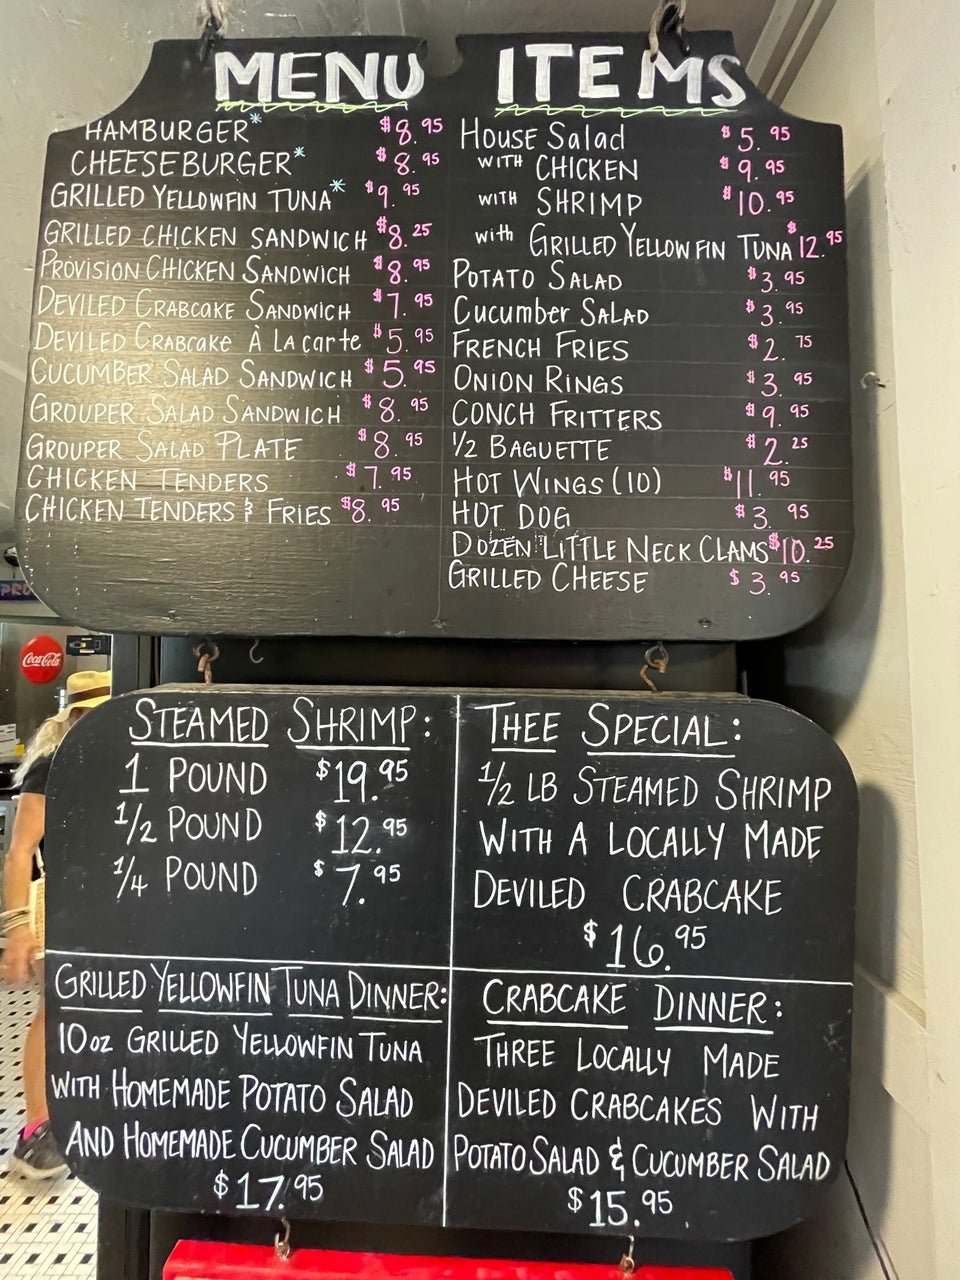 MENU ITEMS
HAMBURGER* $8.95
CHEESEBURGER* $8.95
GRILLED YELLOWFIN TUNA* $9.95
GRILLED CHICKEN SANDWICH $8.25
PROVISION CHICKEN SANDWICH $8.95
DEVILED CRABCAKE SANDWICH $7.95
DEVILED CRABCAKE À LA CARTE $5.95
CUCUMBER SALAD SANDWICH $5.95
GROUPER SALAD SANDWICH $8.95
GROUPER SALAD PLATE $8.95
CHICKEN TENDERS $7.95
CHICKEN TENDERS & FRIES $8.95
House Salad $5.95
WITH CHICKEN $9.95
WITH SHRIMP $10.95
with GRILLED YELLOWFIN TUNA $12.95
POTATO SALAD $3.95
Cucumber SALAD $3.95
FRENCH FRIES $2.75
ONION RINGS $3.95
CONCH FRITTERS $9.95
1/2 BAGUETTE $2.25
HOT WINGS (10) $11.95
HOT DOG $3.95
DOZEN LITTLE NECK CLAMS $10.25
GRILLED CHEESE $3.95
PRO
Coca-Cola
STEAMED SHRIMP:
1 POUND $19.95
1/2 POUND $12.95
1/4 POUND $7.95
THEE SPECIAL:
1/2 LB STEAMED SHRIMP
WITH A LOCALLY MADE
DEVILED CRABCAKE
$16.95
GRILLED YELLOWFIN TUNA DINNER:
10oz GRILLED YELLOWFIN TUNA
WITH HOMEMADE POTATO SALAD
AND HOMEMADE CUCUMBER SALAD
$17.95
CRABCAKE DINNER:
THREE LOCALLY MADE
DEVILED CRABCAKES WITH
POTATO SALAD & CUCUMBER SALAD
$15.95